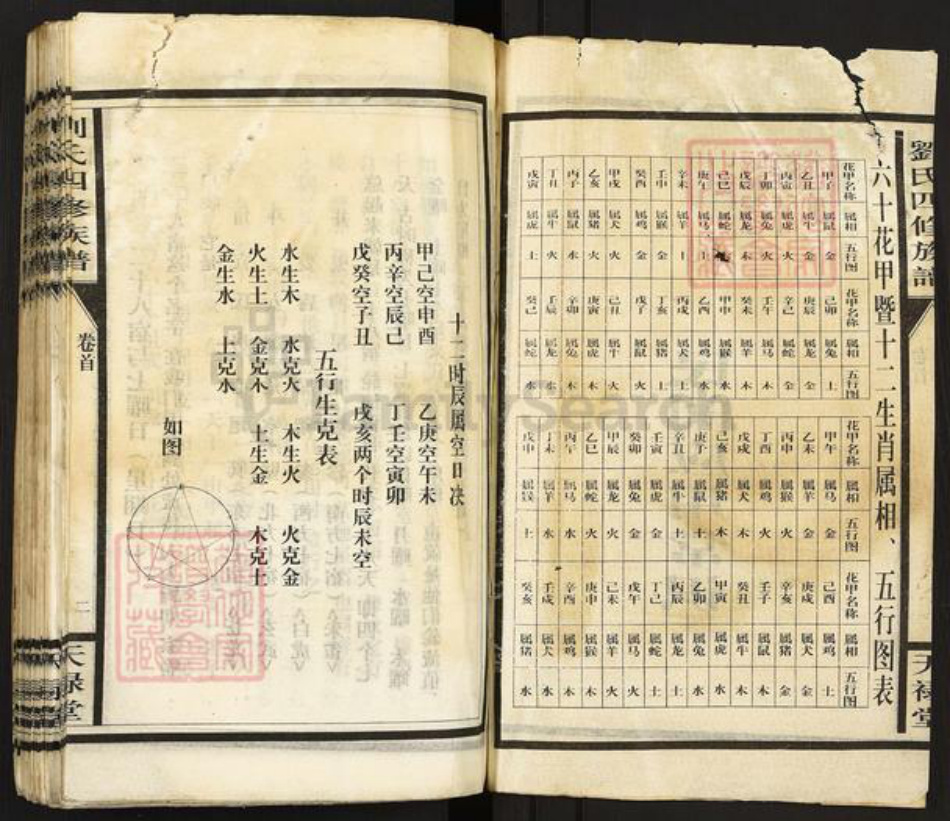 劉氏四修族譜
天禄堂
六十花甲暨十二生肖属相、五行图表
花甲名称 属相 五行图 花甲名称 属相 五行图 花甲名称 属相 五行图 花甲名称 属相 五行图
甲子 属鼠 金 己卯 属兔 土 甲午 属马 金 己酉 属鸡 土
乙丑 属牛 金 庚辰 属龙 金 乙未 属羊 金 庚戌 属犬 金
丙寅 属虎 火 辛己 属蛇 金 丙申 属猴 火 辛亥 属猪 金
丁卯 属兔 火 壬午 属马 木 丁酉 属鸡 火 壬子 属鼠 木
戊辰 属龙 木 癸未 属羊 木 戊戌 属犬 木 癸丑 属牛 木
己巳 属蛇 木 甲申 属猴 水 己亥 属猪 木 甲寅 属虎 水
庚午 属马 土 乙酉 属鸡 水 庚子 属鼠 土 乙卯 属兔 水
辛未 属羊 土 丙戌 属犬 土 辛丑 属牛 土 丙辰 属龙 土
壬申 属猴 金 丁亥 属猪 土 壬寅 属虎 金 丁己 属蛇 土
癸酉 属鸡 金 戊子 属鼠 火 癸卯 属兔 金 戊午 属马 火
甲戌 属犬 火 己丑 属牛 火 甲辰 属龙 火 己未 属羊 火
乙亥 属猪 火 庚寅 属虎 木 乙巳 属蛇 火 庚申 属猴 木
丙子 属鼠 水 辛卯 属兔 木 丙午 属马 水 辛酉 属鸡 木
丁丑 属牛 火 壬辰 属龙 水 丁未 属羊 水 壬戌 属犬 水
戊寅 属虎 土 癸己 属蛇 水 戊申 属猴 土 癸亥 属猪 水
十二时辰属空日决
甲己空申酉 乙庚空午未
丙辛空辰己 丁壬空寅卯
戊癸空子丑 戌亥两个时辰未空
五行生克表
水生木 水克火 木生火 火克金
火生土 金克木 土生金 木克土
金生水 土克水
如图
劉氏四修族譜
卷首
二
天禄堂
FamilySearch